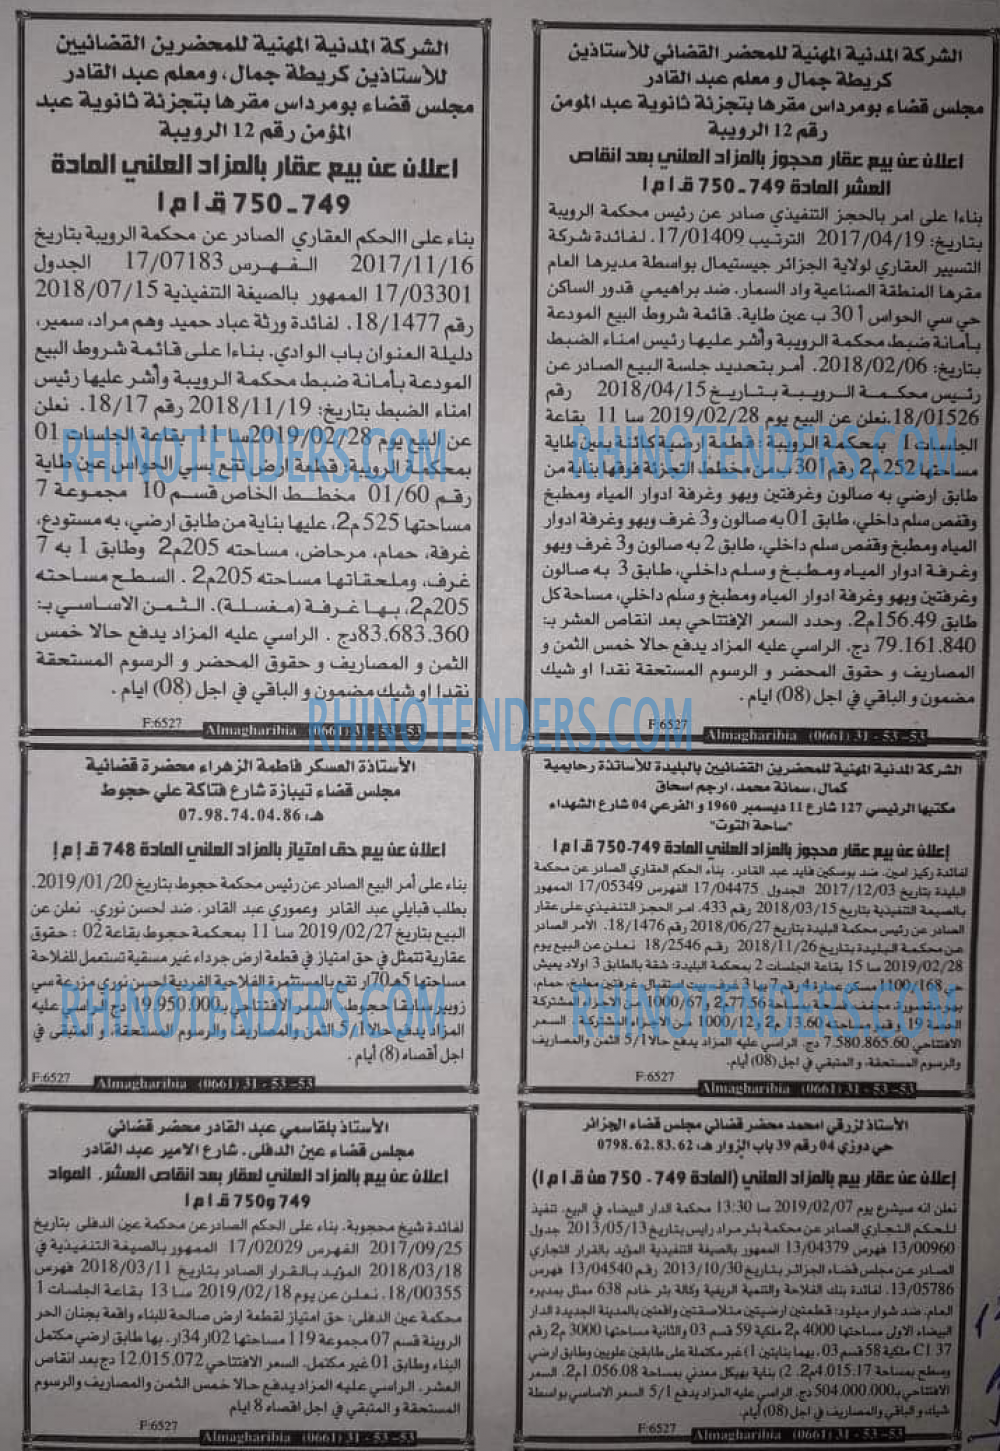 الشركة المدنية المهنية للمحضر القضائي للأستاذين
كريطة جمال و معلم عبد القادر
مجلس قضاء بومرداس مقرها بتجزئة ثانوية عبد المومن
رقم 12 الرويبة
اعلان عن بيع عقار محجوز بالمزاد العلني بعد انقاص
العشر المادة 749ـ750 ق ا م ا
بناءا على امر بالحجز التنفيذي صادر عن رئيس محكمة الرويبة
بتاريخ: 2017/04/19 الترتيب 17/01409. لفائدة شركة
التسيير العقاري لولاية الجزائر جيستيمال بواسطة مديرها العام
مقرها المنطقة الصناعية واد السمار. ضد براهيمي قدور الساكن
حي سي الحواس 301 ب عين طاية. قائمة شروط البيع المودعة
بأمانة ضبط محكمة الرويبة وأشر عليها رئيس امناء الضبط
بتاريخ: 2018/02/06. أمر بتحديد جلسة البيع الصادر عن
رئيس محكمة الرويبة بتاريخ 2018/04/15 رقم
18/01526.نعلن عن البيع يوم 2019/02/28 سا 11 بقاعة
الجلسات 1 بمحكمة الرويبة: قطعة ارضية كائنة بعين طاية
مساحتها 252م2 رقم 301 ب من مخطط التجزئة فوقها بناية من
طابق ارضي به صالون وغرفتين وبهو وغرفة ادوار المياه ومطبخ
وقفص سلم داخلي، طابق 01 به صالون و3 غرف وبهو وغرفة ادوار
المياه ومطبخ وقفص سلم داخلي، طابق 2 به صالون و3 غرف وبهو
وغرفة ادوار المياه ومطبخ و سلم داخلي، طابق 3 به صالون
وغرفتين وبهو وغرفة ادوار المياه ومطبخ و سلم داخلي، مساحة كل
طابق 156.49م2. وحدد السعر الإفتتاحي بعد انقاص العشر بـ:
79.161.840 دج. الراسي عليه المزاد يدفع حالا خمس الثمن و
المصاريف و حقوق المحضر و الرسوم المستحقة نقدا او شيك
مضمون و الباقي في اجل (08) ايام .
F:6527
Almagharibia (0661) 31 - 53 -53
الشركة المدنية المهنية للمحضرين القضائيين
للأستاذين كريطة جمال، ومعلم عبد القادر
مجلس قضاء بومرداس مقرها بتجزئة ثانوية عبد
المؤمن رقم 12 الرويبة
اعلان عن بيع عقار بالمزاد العلني المادة
749ـ750 ق ا م ا
بناء على االحكم العقاري الصادر عن محكمة الرويبة بتاريخ
2017/11/16 الفهرس 17/07183 الجدول
17/03301 الممهور بالصيغة التنفيذية 2018/07/15
رقم 18/1477. لفائدة ورثة عباد حميد وهم مراد، سمير،
دليلة العنوان باب الوادي. بناءا على قائمة شروط البيع
المودعة بأمانة ضبط محكمة الرويبة وأشر عليها رئيس
امناء الضبط بتاريخ: 2018/11/19 رقم 18/17. نعلن
عن البيع يوم 2019/02/28سا 11 بقاعة الجلسات 01
بمحكمة الرويبة: قطعة ارض تقع بسي الحواس عين طاية
رقم 01/60 مخطط الخاص قسم 10 مجموعة 7
مساحتها 525 م2، عليها بناية من طابق ارضي، به مستودع،
غرفة، حمام، مرحاض، مساحته 205م2 وطابق 1 به 7
غرف، وملحقاتها مساحته 205م2 . السطح مساحته
205م2، بها غرفة (مغسلة). الثمن الاساسي بـ:
83.683.360دج . الراسي عليه المزاد يدفع حالا خمس
الثمن و المصاريف و حقوق المحضر و الرسوم المستحقة
نقدا او شيك مضمون و الباقي في اجل (08) ايام .
F:6527
Almagharibia (0661) 31 - 53 -53
الشركة المدنية المهنية للمحضرين القضائيين بالبليدة للأساتذة رحايمية
كمال، سمانة محمد، ارجم اسحاق
مكتبها الرئيسي 127 شارع 11 ديسمبر 1960 و الفرعي 04 شارع الشهداء
"ساحة التوت"
إعلان عن بيع عقار محجوز بالمزاد العلني المادة 749-750 ق ا م ا
لفائدة ركيز امين. ضد بوسكين فايد عبد القادر. بناء الحكم العقاري الصادر عن محكمة
البليدة بتاريخ 2017/12/03 الجدول 17/04475 الفهرس 17/05349 الممهور
بالصيغة التنفيذية بتاريخ 2018/03/15 رقم 433. امر الحجز التنفيذي على عقار
الصادر عن رئيس محكمة البليدة بتاريخ 2018/06/27 رقم 18/1476. الأمر الصادر
عن محكمة البليدة بتاريخ 2018/11/26 رقم 18/2546 نعلن عن البيع يوم
2019/02/28 سا 15 بقاعة الجلسات 2 بمحكمة البليدة: شقة بالطابق 3 اولاد يعيش
حي 1100/168 مسكن عمارة 4 رقم 7 بها 3 غرف، بيت استقبال، غرفتين، مطبخ، حمام،
77.56م2 و1000/67 من الاجزاء المشتركة
الحصة 19 و قبو مساحته 13.60 م2 و1000/12 من الاجزاء المشتركة . السعر
الافتتاحي 7.580.865.60 دج. الراسي عليه المزاد يدفع حالا 5/1 الثمن والمصاريف
والرسوم المستحقة، و المتبقي في اجل (08) يوم.
F:6527
Almagharibia (0661) 31 - 53 -53
الأستاذة العسكر فاطمة الزهراء محضرة قضائية
مجلس قضاء تيبازة شارع فتاكة علي حجوط
هـ: 07.98.74.04.86
اعلان عن بيع حق امتياز بالمزاد العلني المادة 748 ق إ م إ
بناء على أمر البيع الصادر عن رئيس محكمة حجوط بتاريخ 2019/01/20.
بطلب قبايلي عبد القادر وعموري عبد القادر. ضد لحسن نوري. نعلن عن
البيع بتاريخ 2019/02/27 سا 11 بمحكمة حجوط بقاعة 02 : حقوق
عقارية تتمثل في حق امتياز في قطعة ارض جرداء غير مسقية تستعمل للفلاحة
مساحتها 5هـ70ار تقع بالمستثمرة الفلاحية الفردية لحسن نوري مزرعة سي
زوبير سابقا حجوط. السعر الافتتاحي بـ 19.950.000دج الراسي عليه
المزاد يدفع حالا 5/1 الثمن والمصاريف والرسوم المستحقة، و المتبقي في
اجل أقصاه (8) أيام .
F:6527
Almagharibia (0661) 31 - 53 -53
الأستاذ لزرقي امحمد محضر قضائي مجلس قضاء الجزائر
حي دوزي 04 رقم 39 باب الزوار هـ: 0798.62.83.62
إعلان عن عقار بيع بالمزاد العلني (المادة 749 - 750 من ق ا م ا)
نعلن انه سيشرع يوم 2019/02/07 سا 13:30 محكمة الدار البيضاء في البيع. تنفيذ
للحكم التجاري الصادر عن محكمة بئر مراد رايس بتاريخ 2013/05/13 جدول
13/00960 فهرس 13/04379 الممهور بالصيغة التنفيذية المؤيد بالقرار التجاري
الصادر عن مجلس قضاء الجزائر بتاريخ 2013/10/30 رقم 13/04540 فهرس
13/05786. لفائدة بنك الفلاحة والتنمية الريفية وكالة بئر خادم 638 ممثل بمديره
العام. ضد شوار ميلود: قطعتين ارضيتين متلاصقتين واقعتين بالمدينة الجديدة الدار
البيضاء الاولى مساحتها 4000 م2 ملكية 59 قسم 03 والثانية مساحتها 3000 م2 رقم
C1 37 ملكية 58 قسم 03. بهما بنايتين 1) غير مكتملة على طابقين علويين وطابق ارضي
وسطح بمساحة 4.015.17م2. 2) بناية بهيكل معدني بمساحة 1.056.08م2. السعر
الافتتاحي بـ504.000.000 دج. الراسي عليه المزاد يدفع 5/1 السعر الاساسي بواسطة
شيك و الباقي والمصاريف في اجل (08) أيام.
F:6527
Almagharibia (0661) 31 - 53 -53
الأستاذ بلقاسمي عبد القادر محضر قضائي
مجلس قضاء عين الدفلى. شارع الامير عبد القادر
اعلان عن بيع بالمزاد العلني لعقار بعد انقاص العشر. المواد
749 و750 ق ا م ا
لفائدة شيخ محجوبة. بناء على الحكم الصادر عن محكمة عين الدفلى بتاريخ
2017/09/25 الفهرس 17/02029 الممهور بالصيغة التنفيذية في
2018/03/18 المؤيد بالقرار الصادر بتاريخ 2018/03/11 فهرس
18/00355. نعلن عن يوم 2019/02/18 سا 13 بقاعة الجلسات 1
محكمة عين الدفلى: حق امتياز لقطعة ارض صالحة للبناء واقعة بجنان الحر
الروينة قسم 07 مجموعة 119 مساحتها 02ار34ار. بها طابق ارضي مكتمل
البناء وطابق 01 غير مكتمل. السعر الافتتاحي 12.015.072 دج بعد انقاص
العشر. الراسي عليه المزاد يدفع حالا خمس الثمن والمصاريف والرسوم
المستحقة و المتبقي في اجل اقصاه 8 ايام
F:6527
Almagharibia (0661) 31 - 53 -53
RHINOTENDERS.COM
RHINOTENDERS.COM
RHINOTENDERS.COM
RHINOTENDERS.COM
RHINOTENDERS.COM